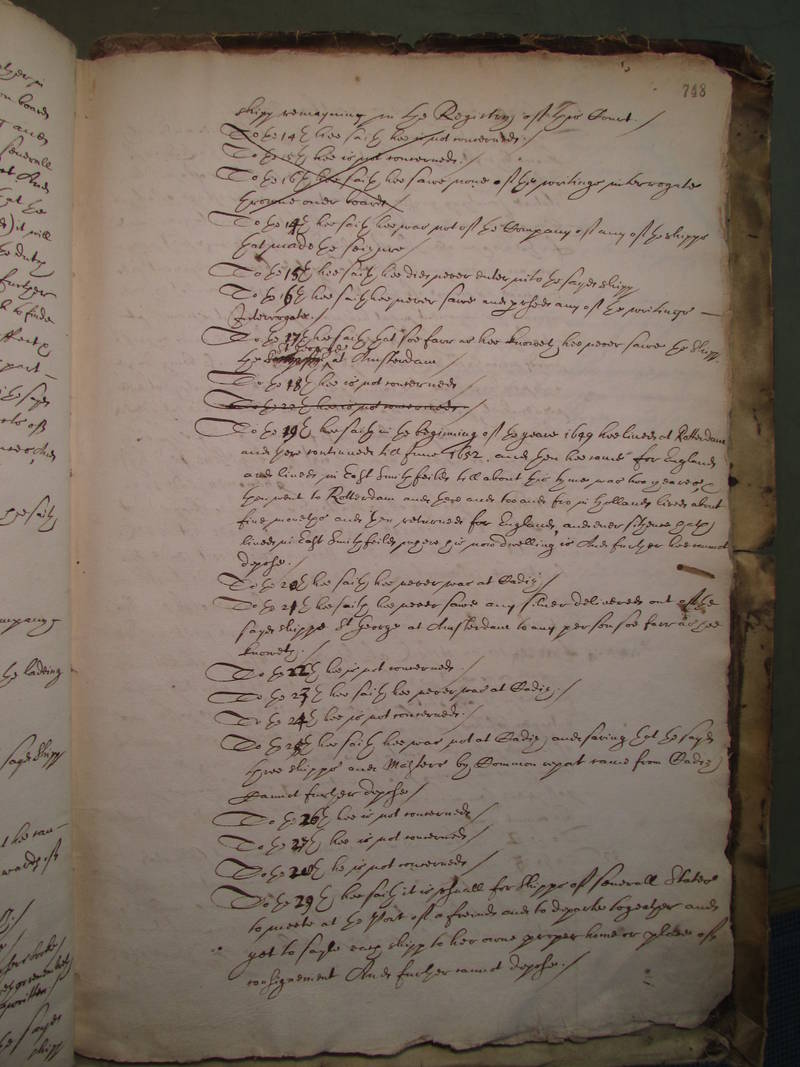 748
shipp remayning in the Registry of this Court./
To the 14th hee saith hee is not concerned./
To the 15th hee is not concerned./
To the 16th hee saith hee sawe none of the writings interrogate
throwne over board
To the 14th hee saith hee was not of the Company of any of the shipps
that made the seizure/
To the 15th hee saith hee did never enter into the sayd shipp
To the 16th hee saith hee never sawe and perused any of the writings
Interrogate./
To the 17th hee saith that soe farr as hee knoweth hee never sawe the shipp
the St George at Amsterdam
To the 18th hee is not concerned/
To the 20 hee is not concerned/
To the 19th hee saith in the beginning of the yeare 1649 hee lived at Rotterdam
and there continued till June 1652. and then hee came for England
and lived in East Smithfeild till about this tyme was two yeares
then went to Rotterdam and there and too and fro in Holland lived about
five moneths and then returned for England, and ever sithence hath
lived in East Smithfeild where his now dwelling is And further hee cannot
depose./
To the 20th hee saith hee never was at Cadiz/
To the 21th hee saith hee never sawe any silver delivered out of the
sayd shippe St George at Amsterdam to any person soe farr as hee
knoweth./
To the 22th he is not concerned./
To the 23th hee saith hee never was at Cadiz./
To the 24th hee is not concerned./
To the 25th hee saith hee was not at Cadiz, and saving that the sayd
three shipps and Masters by Common report came from Cadiz
Cannot further depose/
To the 26th hee is not concerned/
To the 27th hee is not concerned/
To the 28th he is not concerned/
To the 29th hee saith it is usuall for shipps of severall States
to meete at the Port of a freind and to departe together and
yet to sayle each shipp to her owne proper home or place of
consignement And further cannot depose./